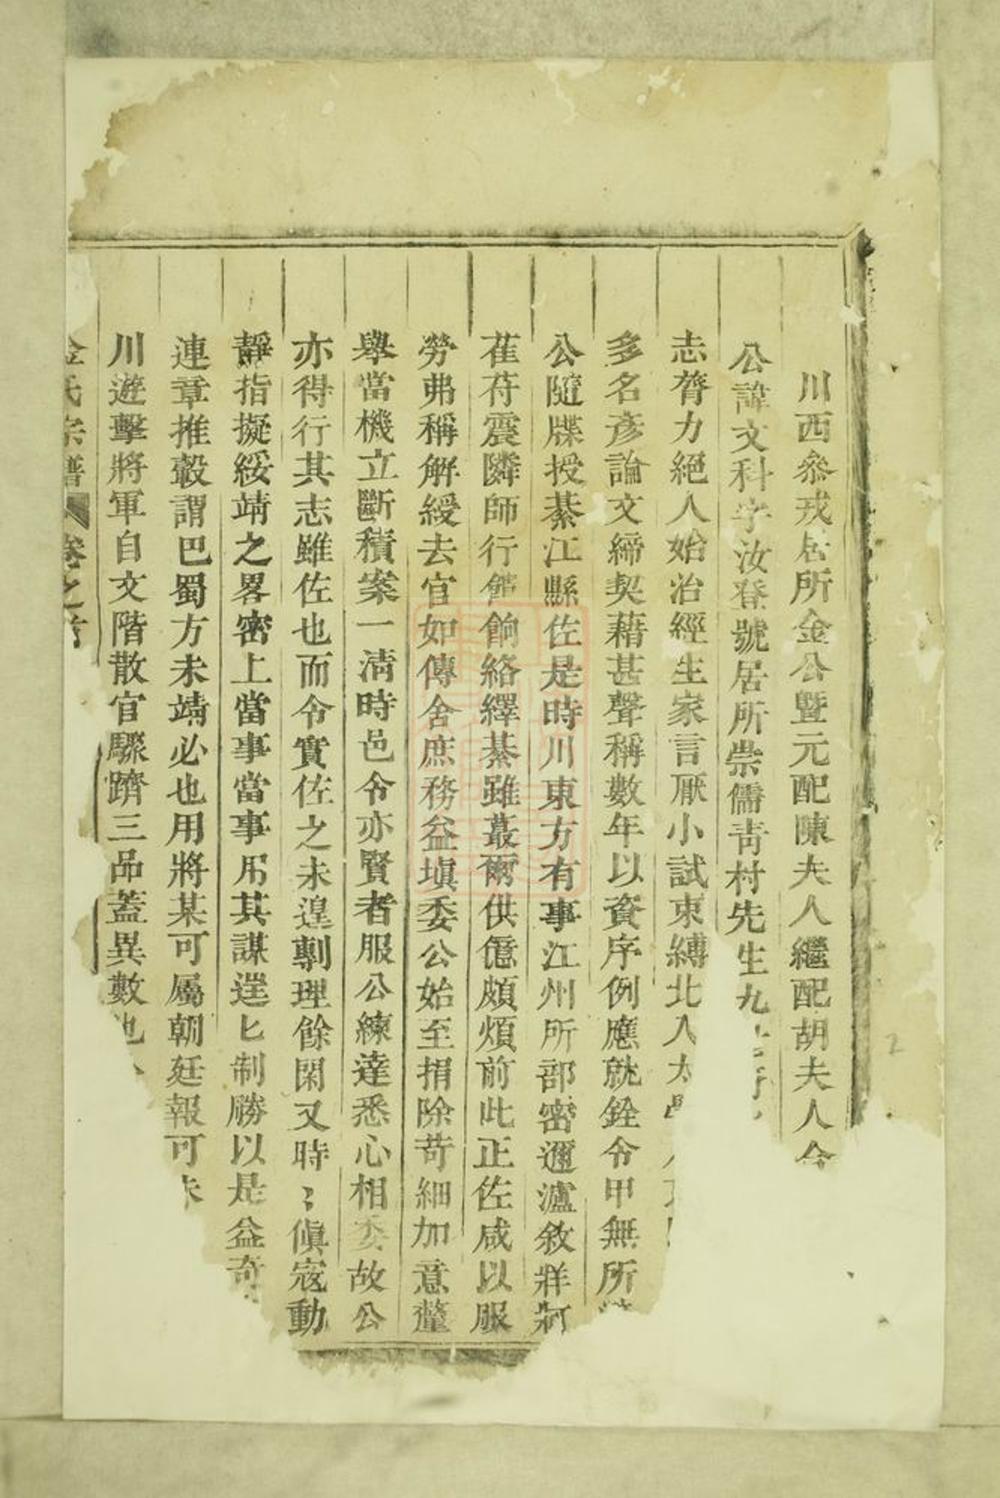 川西參戎居所金公暨元配陳夫人繼配胡夫人合
公諱文科字汝登號居所崇儒靑村先生九世
志膂力絕人始治經生家言厭小試束縛北入太
多名彥論文締契藉甚聲稱數年以資序例應就銓令甲無所
公隨牒授綦江縣佐是時川東方有事江州所部密邇瀘敘牂牁
萑苻震隣師行餽餉絡繹綦雖蕞爾供億頗煩前此正佐咸以服
勞弗稱解綬去官如傳舍庶務益塡委公始至捐除苛細加意釐
舉當機立斷積案一淸時邑令亦賢者服公練達悉心相委故公
亦得行其志雖佐也而令實佐之未遑剸理餘閑又時〻偵寇動
靜指擬綏靖之畧密上當事當事用其謀逞匕制勝以是益奇
連章推轂謂巴蜀方未靖必也用將某可屬朝廷報可未
川遊擊將軍自文階散官驟躋三品蓋異數也
金氏宗譜 卷之首